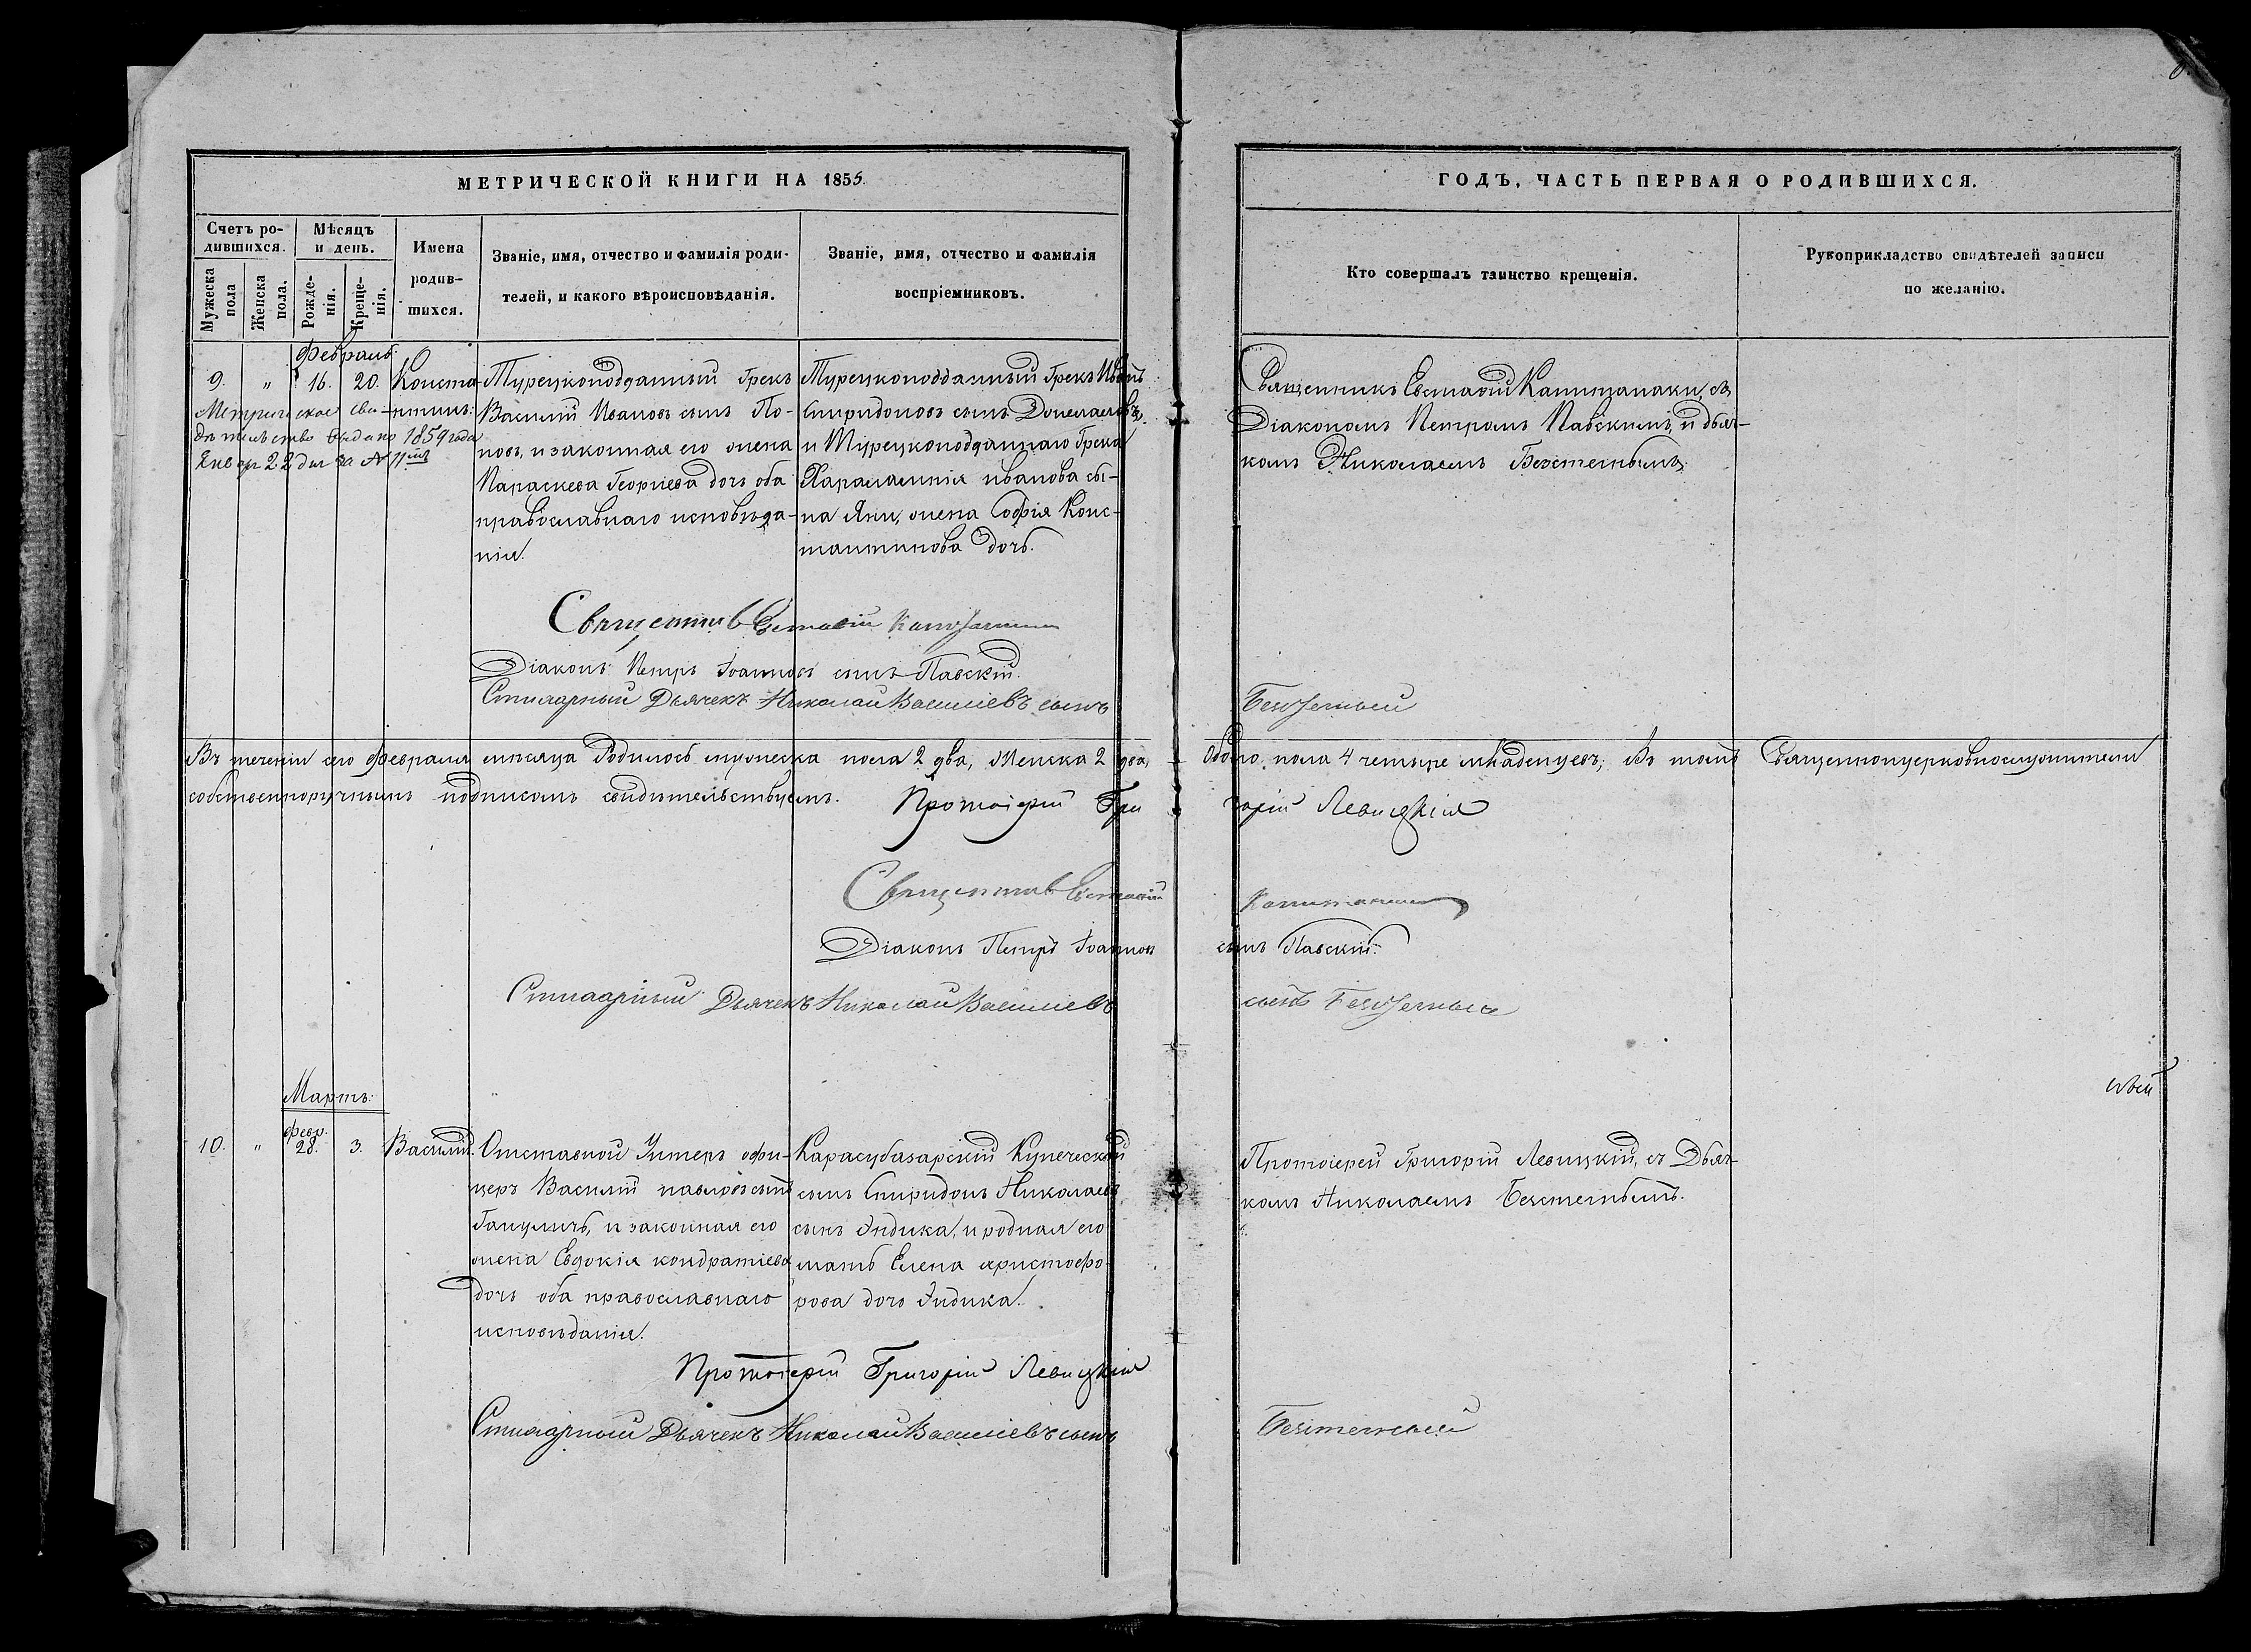 МЕТРИЧЕСКОЙ КНИГИ НА 1855.
ГОДЪ, ЧАСТЬ ПЕРВАЯ О РОДИВШИХСЯ.
Счетъ ро-
дившихся.
Мужеска
пола
Женска
пола.
Мѣсяцъ
и день.
Рожде-
нія.
Креще-
нія.
Имена
родив-
шихся.
Званіе, имя, отчество и фамилія роди-
телей, и какого вѣроисповѣданія.
Званіе, имя, отчество и фамилія
воспріемниковъ.
Кто совершалъ таинство крещенія.
Рукоприкладство свидѣтелей записи
по желанію.
Февраль
9. " 16. 20. Конста-
нтинъ.
Метрическое сви-
дѣтельство выдано 1859 года
Январ 22 дня за № 11мъ
Турецкоподданный Грекъ
Василій Ивановъ сынъ По-
повъ, и законная его жена
Параскева Георгіева дочь оба
православнаго исповѣда-
нія.
Турецкоподданный Грекъ Иванъ
Спиридоновъ сынъ
и Турецкоподданнаго Грека
Харалампія иванова сы-
на Яни, жена Софія Конс-
тантинова дочь.
Священникъ Евстафій Капитанаки, съ
Діакономъ Петромъ Павскимъ, и дьяч-
комъ Николаемъ Безстемнымъ.
Священник Евстафій Капитанаки
Діаконъ Петръ Іоанновъ сынъ Павскій.
Стихарный Дьячекъ Николай Василіевъ сынъ
Въ теченіи сего февраля мѣсяца Родилось мужеска пола 2 два, Женска 2 два, Обоего пола 4 четыре младенцевъ; Въ томъ Священноцерковнослужители
собственноручнымъ подписомъ свидѣтельствуемъ. Протоіерей Гри горій Левицкій
Священник Евстафій Капитанаки
Діаконъ Петръ Іоаннов сынъ Павскій.
Стихарный Дьячекъ Николай Василіевъ сынъ
Мартъ:
10. " февр. 28. 3. Василій.
Отставной Унтеръ офи-
церъ Василій павловъ сынъ
и законная его
жена Евдокія кондратіева
дочь оба православнаго
исповѣданія.
Карасубазарскій Купеческій
сынъ Спиридонъ Николаевъ
сынъ Индика, и родная его
мать Елена христофо-
рова дочь Индика.
Протоіерей Григорій Левицкій, съ Дьяч-
комъ Николаемъ Безстемнымъ.
Протоіерей Григорій Левицкій
Стихарный Дьячекъ Николай Василіевъ сынъ